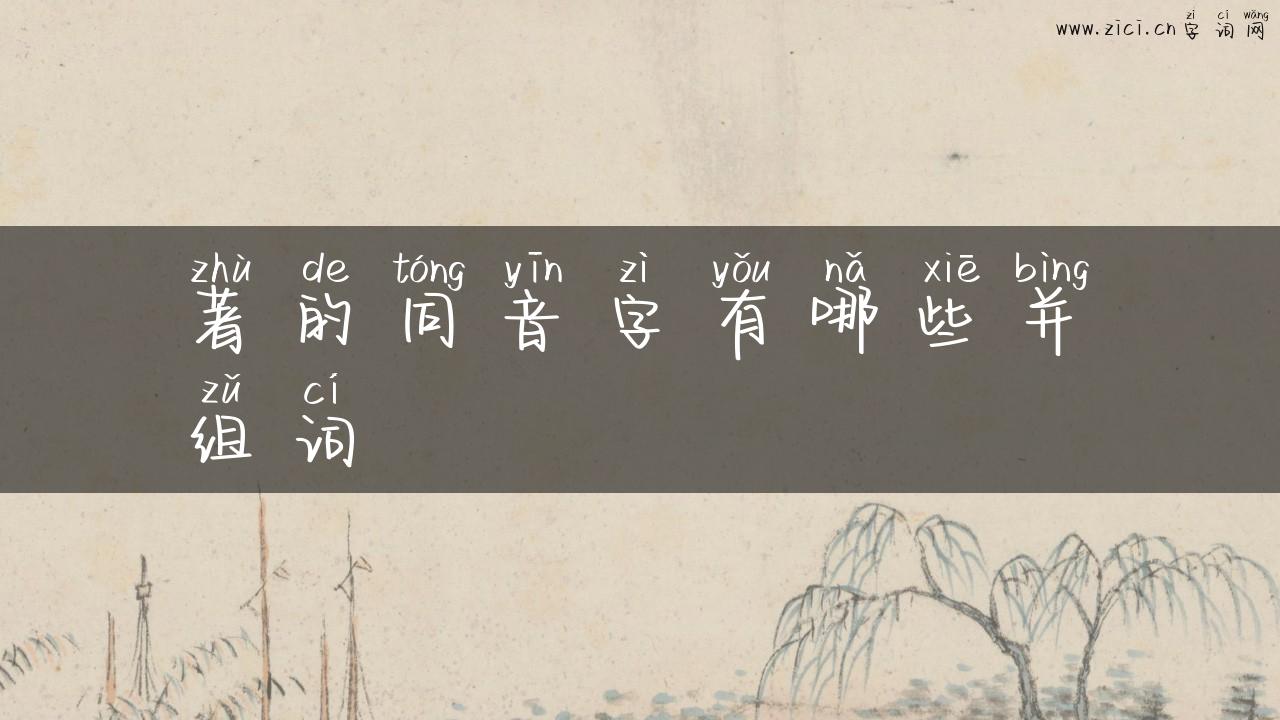 zì cí wǎng
www.zici.cn 字词网
zhù de tóng yīn zì yǒu nǎ xiē bìng
著的同音字有哪些并
zǔ cí
组词